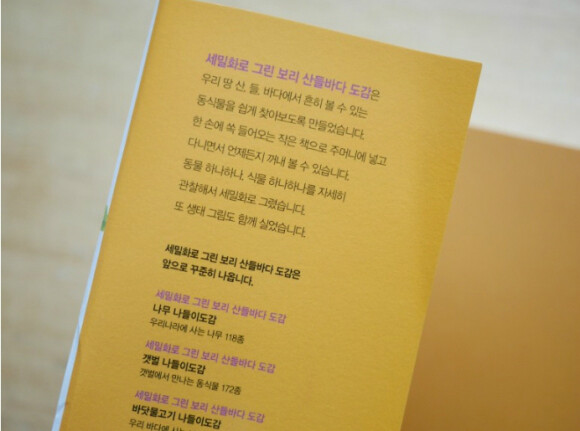 세밀화로 그린 보리 산들바다 도감은
우리 땅 산, 들, 바다에서 흔히 볼 수 있는
동식물을 쉽게 찾아보도록 만들었습니다.
한 손에 쏙 들어오는 작은 책으로 주머니에 넣고
다니면서 언제든지 꺼내 볼 수 있습니다.
동물 하나하나, 식물 하나하나를 자세히
관찰해서 세밀화로 그렸습니다.
또 생태 그림도 함께 실었습니다.
세밀화로 그린 보리 산들바다 도감은
앞으로 꾸준히 나옵니다.
세밀화로 그린 보리 산들바다 도감
나무 나들이도감
우리나라에 사는 나무 118종
세밀화로 그린 보리 산들바다 도감
갯벌 나들이도감
갯벌에서 만나는 동식물 172종
세밀화로 그린 보리 산들바다 도감
바닷물고기 나들이도감
우리 바다에 사는